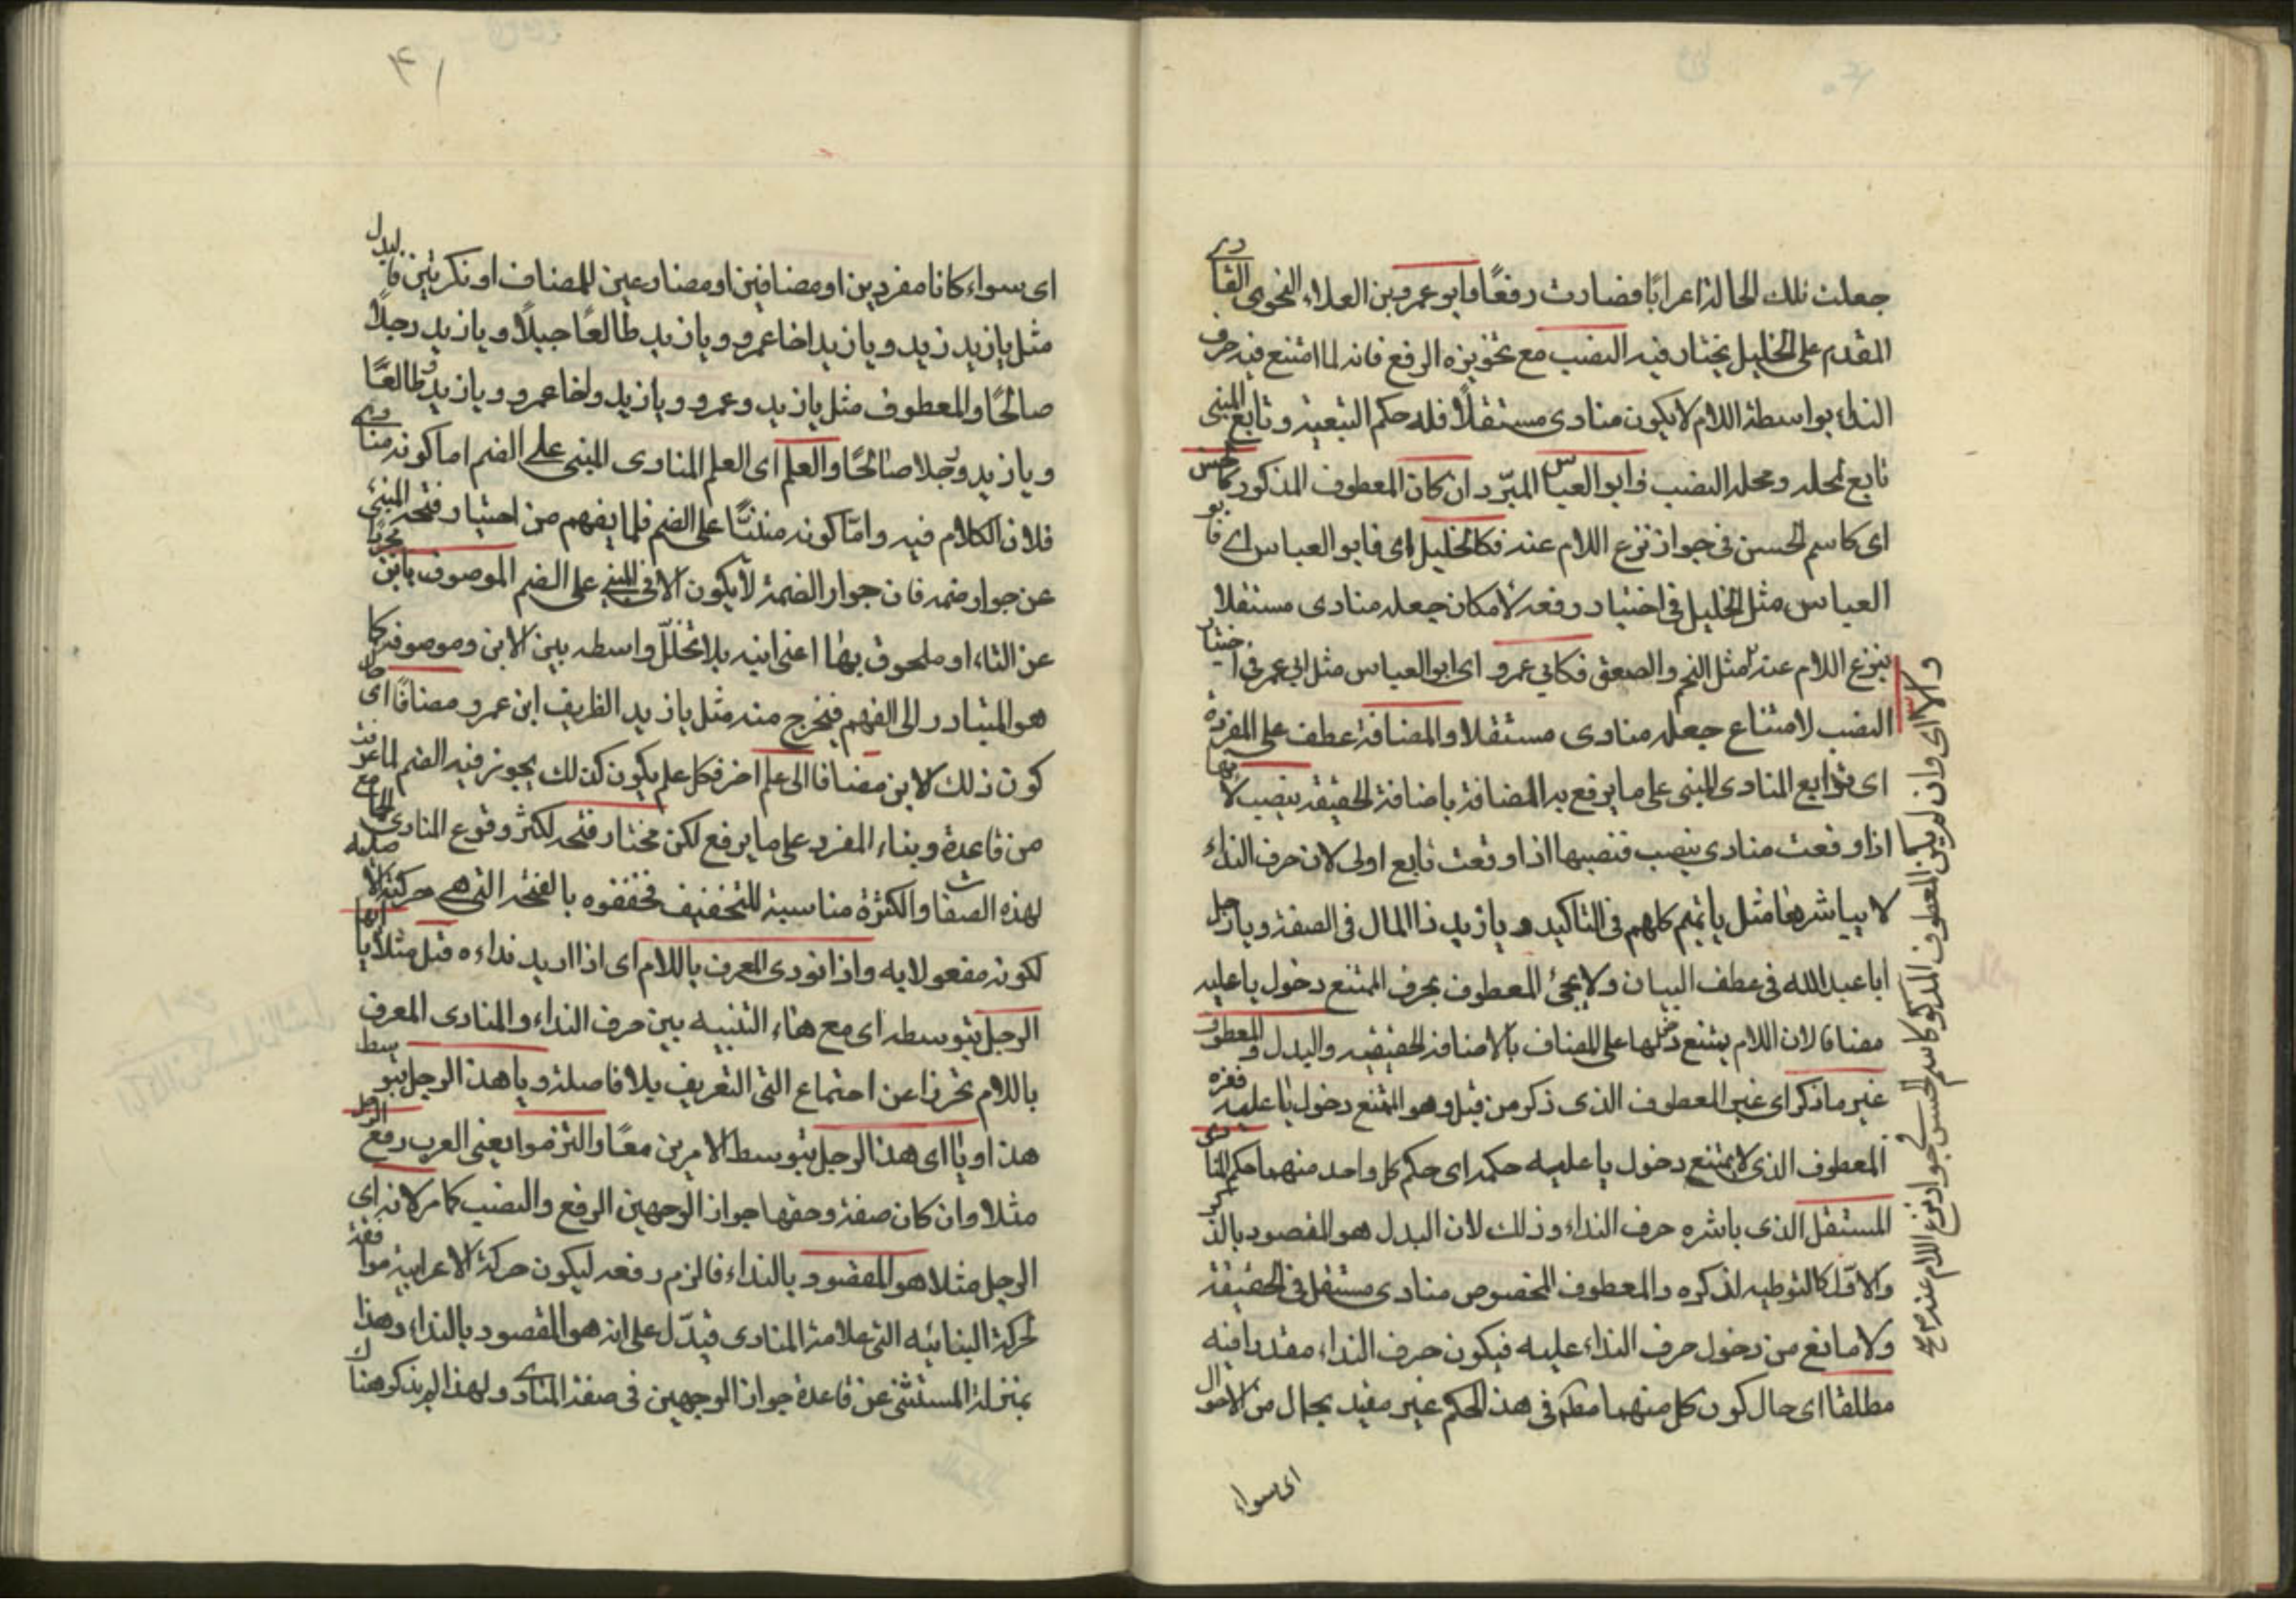 جعلت تلك الحالة اعرابًا فصارت رفعًا وابو عمرو بن العلاء النحوى القارى
المقدم على الخليل يختار فيه النصب مع تجويزه الرفع فانه لما امتنع فيه حرف
النداء بواسطة اللام لا يكون منادى مستقلًا فله حكم التبعية وتابع المبنى
تابع لمحله ومحله النصب وابو العباس المبرّد ان كان المعطوف المذكور كالحسن
اى كاسم الحسن فى جواز نزع اللام عنه فكالخليل اى فابو العباس اى فابو
العباس مثل الخليل فى اختيار رفعه لامكان جعله منادى مستقلا
بنزع اللام عنه مثل النجم والصعق فكابى عمرو اى ابو العباس مثل ابى عمر فى اختيار
النصب لامتناع جعله منادى مستقلا والمضافة عطف على المفردة
اى توابع المنادى المبنى على ما يرفع به المضافة باضافة الحقيقة ينصب لانها
اذا وقعت منادى ينصب فنصبها اذا وقعت تابع اولى لان حرف النداء
لا يباشرها مثل يا تميم كلهم فى التاكيد و يا زيد ذا المال فى الصفة ويا رجل
ابا عبد الله فى عطف البيان ولا يجئ المعطوف بحرف الممتنع دخول يا عليه
مضافا لان اللام يمتنع دخولها على المضاف بالاضافة الحقيقيه والبدل والمعطوف
غير ما ذكر اى غير المعطوف الذى ذكر من قبل وهو الممتنع دخول يا عليه فغيره
المعطوف الذى لا يمتنع دخول يا عليه حكمه اى حكم كل واحد منهما حكم المنادى
المستقل الذى باشره حرف النداء وذلك لان البدل هو المقصود بالذكر
والاوّل كالتوطيه لذكره والمعطوف المخصوص منادى مستقل فى الحقيقة
ولا مانع من دخول حرف النداء عليه فيكون حرف النداء مقدرا فيه
مطلقا اى حال كون كل منهما مطلقا فى هذ الحكم غير مقيد بحال من الاحوال
اى سواء
والا اى وان لم يكن المعطوف المذكور كاسم الحسن فى جواز نزع اللام عنه صح
۴۱
اى سواء كانا مفردين او مضافين او مضارعين للمضاف او نكرتين فالبدل
مثل يا زيد زيد ويا زيد اخا عمرو ويا زيد طالعًا جبلًا ويا زيد رجلًا
صالحًا والمعطوف مثل يا زيد وعمرو ويا زيد واخا عمرو ويا زيد وطالعًا
ويا زيد ورجلا صالحًا والعلم اى العلم المنادى المبنى على الضم اما كونه منادى
فلان الكلام فيه وامّا كونه مبنيًّا على الضم فلما يفهم من اختيار فتحه المبنئ
عن جواز ضمه فان جواز الضمة لا يكون الا فى المبنى على الضم الموصوف بابن مجردا
عن التاء او ملحوق بها اعنى ابنه بلا تخلّل واسطه بين الابن وموصوفه كما
هو المتبادر الى الفهم فيخرج منه مثل يا زيد الظريف ابن عمرو مضافًا اى حال
كون ذلك الابن مضافا الى علم اخر فكل علم يكون كذلك يجوز فيه الضم لما عرفت
من قاعدة وبناء المفرد على ما يرفع لكن مختار فتحه لكثرة وقوع المنادى الجامع
لهذه الصفات والكثرة مناسبة للتخفيف فخففوه بالفتحة التى هى حركته الاصليه
لكونه مفعولا به واذا نودى المعرف باللام اى اذا اريد نداءه قيل مثلًا يا ايها
الرجل بتوسطه اى مع هاء التنبيه بين حرف النداء والمنادى المعرف
باللام تحرزا عن اجتماع التى التعريف بلا فاصلة ويا هذا الرجل بتوسط
هذا ويا اى هذا الرجل بتوسط الامرين معًا والتزموا يعنى العرب رفع الرجل
مثلا وان كان صفة وحقها جواز الوجهين الرفع والنصب كما مر لانه اى
الرجل مثلا هو المقصود بالنداء فالزم رفعه ليكون حركة الاعرابية موافقة
لحركة البنائيه التى علامة المنادى فيدّل على انه هو المقصود بالنداء وهذا
بمنزلة المستثنى عن قاعدة جواز الوجهين فى صفة المنادى ولهذا لم يذكر هناك